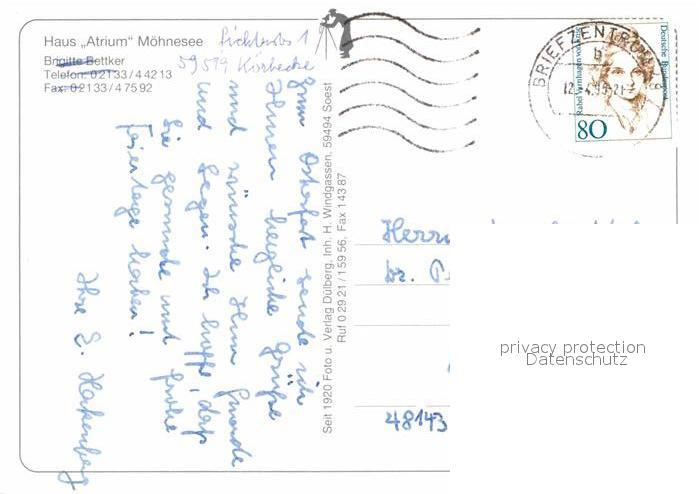 Haus „Atrium" Möhnesee
Brigitte Bettker
Telefon: 0 21 33 / 4 42 13
Fax: 0 21 33 / 4 75 92
59519 Körbecke
Zum Osterfest sende ich
Ihnen herzliche Grüße
und wünsche Ihnen Gnade
und Segen. Ich hoffe, daß
Sie gesunde und frohe
Feiertage haben!
Ihre E. Hakenberg
Seit 1920 Foto u. Verlag Dülberg. Inh. H. Windgassen, 59494 Soest
Ruf 0 29 21 / 1 59 56, Fax 1 43 87
BRIEFZENTRUM
b
Rahel Varnhagen von Ense
Deutsche Bundespost
80
Herrn
48143
privacy protection
Datenschutz